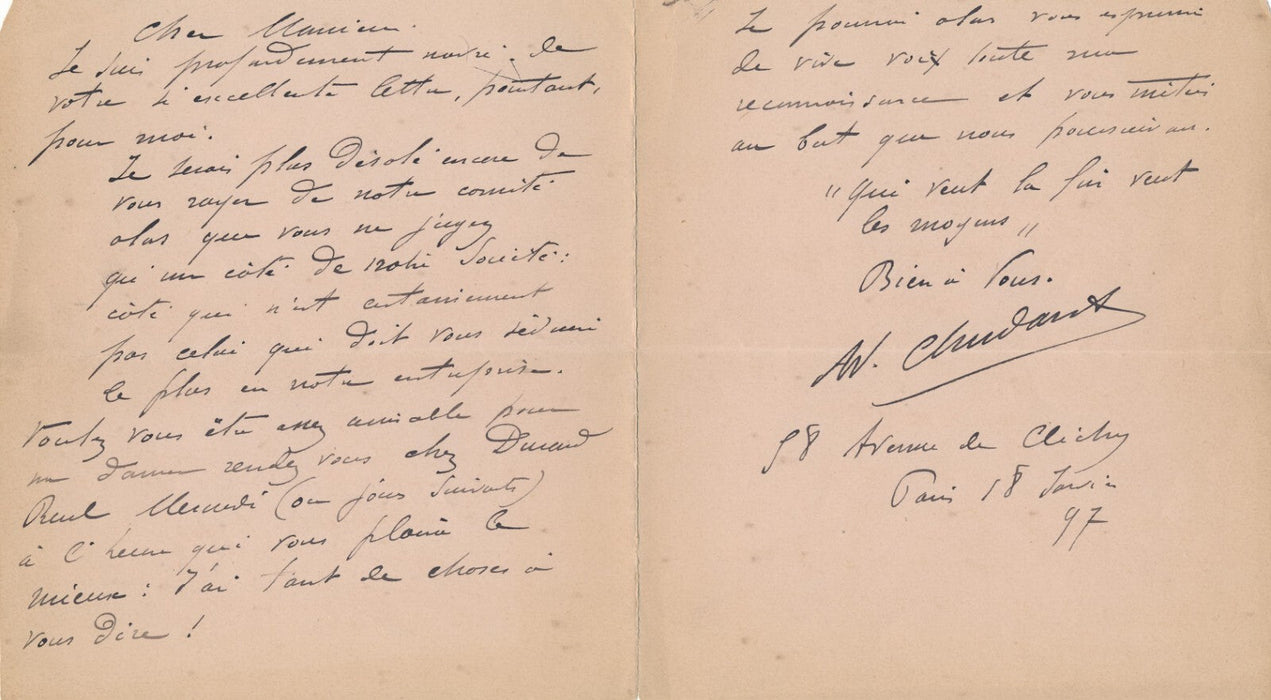 Cher Monsieur.
Je suis profondement navré. de
votre si excellente lettre, pourtant,
pour moi.
Je serais plus désolé encore de
vous rayer de notre comité
alors que vous ne jugez
qu'un côté de notre Société:
côté qui n'est certainement
pas celui qui doit vous séduire
le plus en notre entreprise.
Voulez vous être assez aimable pour
me donner rendez vous chez Durand
Ruel Mercredi (ou jours suivants)
à l'heure qui vous plaira le
mieux: J'ai tant de choses à
vous dire!
Je pourrai alors vous exprimer
de vive voix toute ma
reconnaissance et vous initier
au but que nous poursuivons.
"Qui veut la fin veut
les moyens"
Bien à Vous.
58 Avenue de Clichy
Paris 18
97